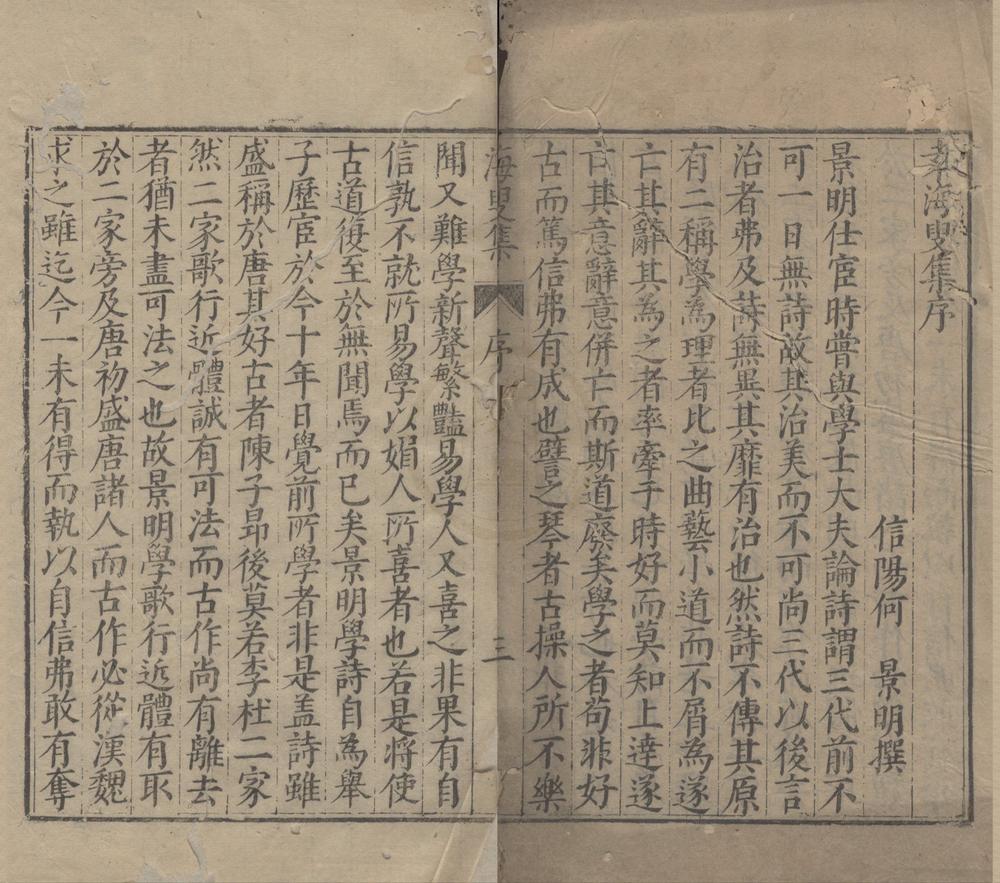 海叟集序
信陽何　景明撰
景明仕宦時嘗與學士大夫論詩謂三代前不
可一日無詩故其治美而不可尚三代以後言
治者弗及詩無異其靡有治也然詩不傳其原
有二稱學為理者比之曲藝小道而不屑為遂
亡其辭其為之者率牽于時好而莫知上達遂
亡其意辭意併亡而斯道廢矣學之者苟非好
古而篤信弗有成也譬之琴者古操人所不樂
海叟集　序　三
聞又難學新聲繁豔易學人又喜之非果有自
信孰不就所易學以媚人所喜者也若是將使
古道復至於無聞焉而已矣景明學詩自為舉
子歷宦於今十年日覺前所學者非是盖詩雖
盛稱於唐其好古者陳子昂後莫若李杜二家
然二家歌行近體誠有可法而古作尚有離去
者猶未盡可法之也故景明學歌行近體有取
於二家旁及唐初盛唐諸人而古作必從漢魏
求之雖迄今一未有得而執以自信弗敢有奪